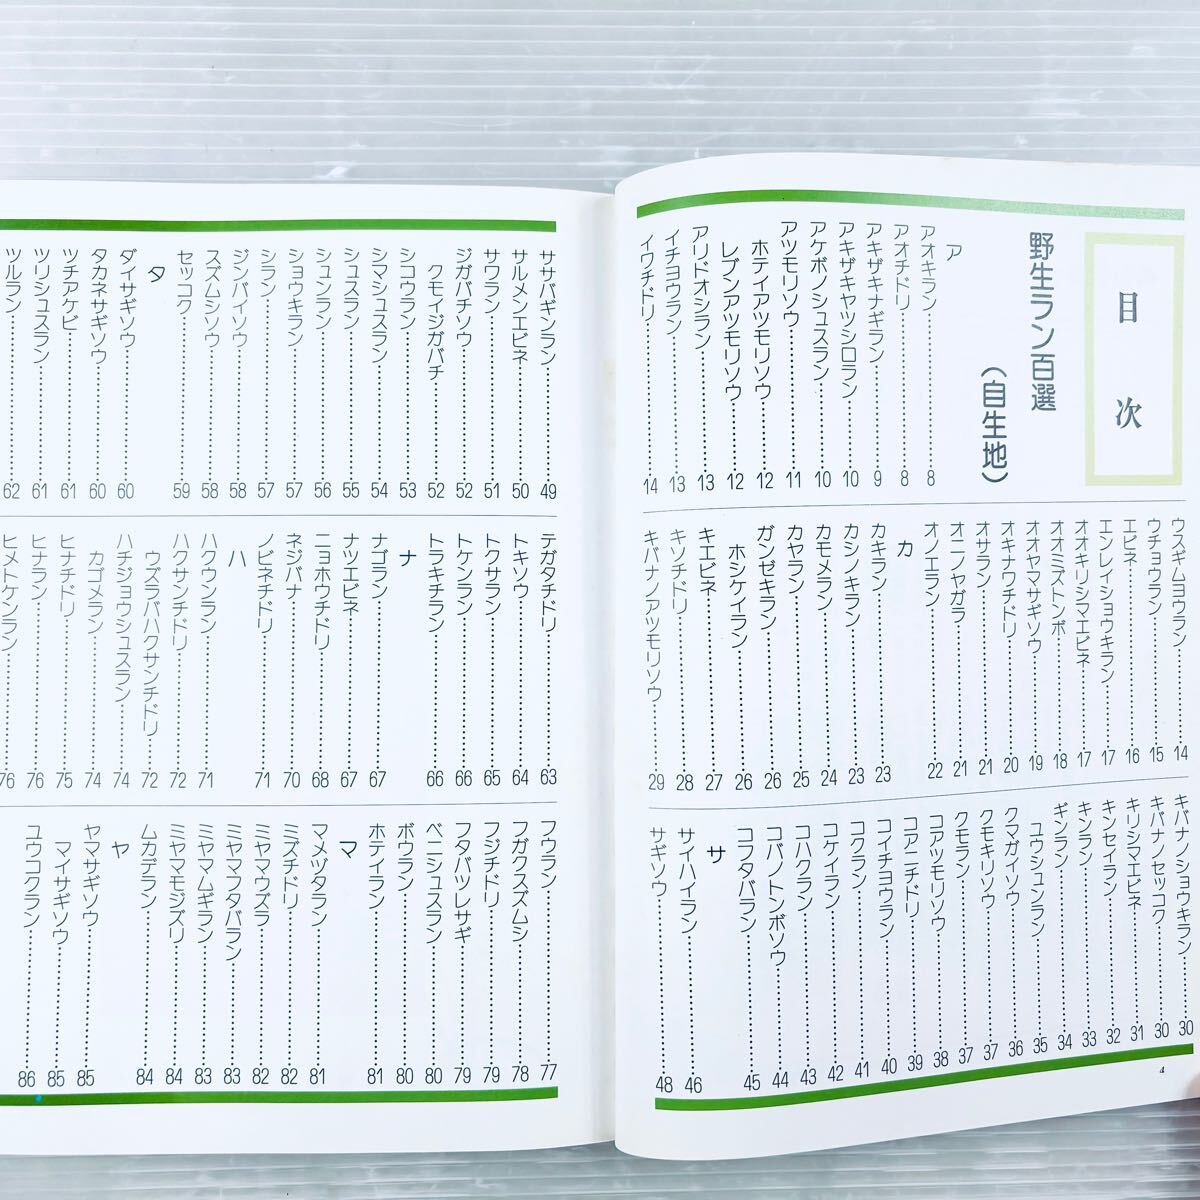 目次
野生ラン百選
(自生地)
ア
アオキラン……8
アオチドリ……8
アキザキナギラン……9
アキザキヤツシロラン……10
アケボノシュスラン……10
アツモリソウ……11
ホテイアツモリソウ……12
レブンアツモリソウ……12
アリドオシラン……13
イチヨウラン……13
イワチドリ……14
ウスギムヨウラン……14
ウチョウラン……15
エビネ……16
エンレイショウキラン……17
オオキリシマエビネ……17
オオミズトンボ……18
オオヤマサギソウ……19
オキナワチドリ……20
オサラン……21
オニノヤガラ……21
オノエラン……22
カ
カキラン……23
カシノキラン……23
カモメラン……24
カヤラン……25
ガンゼキラン……26
ホシケイラン……26
キエビネ……27
キソチドリ……28
キバナノアツモリソウ……29
キバナノショウキラン……30
キバナノセッコク……30
キリシマエビネ……31
キンセイラン……32
キンラン……33
ギンラン……34
ユウシュンラン……35
クマガイソウ……36
クモキリソウ……37
クモラン……37
コアツモリソウ……38
コアニチドリ……39
コイチヨウラン……40
コクラン……41
コケイラン……42
コハクラン……43
コバノトンボソウ……44
コフタバラン……45
サ
サイハイラン……46
サギソウ……48
4
ササバギンラン……49
サルメンエビネ……50
サワラン……51
ジガバチソウ……52
クモイジガバチ……52
シコウラン……53
シマシュスラン……54
シュスラン……55
シュンラン……56
ショウキラン……57
シラン……57
ジンバイソウ……58
スズムシソウ……58
セッコク……59
タ
ダイサギソウ……60
タカネサギソウ……60
ツチアケビ……61
ツリシュスラン……61
ツルラン……62
テガタチドリ……63
トキソウ……64
トクサラン……65
トケンラン……66
トラキチラン……66
ナ
ナゴラン……67
ナツエビネ……67
ニョホウチドリ……68
ネジバナ……70
ノビネチドリ……71
ハ
ハクウンラン……71
ハクサンチドリ……72
ウズラバハクサンチドリ……72
ハチジョウシュスラン……74
カゴメラン……74
ヒナチドリ……75
ヒナラン……76
ヒメトケンラン……76
フウラン……77
フガクスズムシ……78
フジチドリ……79
フタバツレサギ……79
ベニシュスラン……80
ボウラン……80
ホテイラン……81
マ
マメヅタラン……81
ミズチドリ……82
ミヤマウズラ……82
ミヤマフタバラン……83
ミヤマムギラン……83
ミヤマモジズリ……84
ムカデラン……84
ヤ
ヤマサギソウ……85
マイサギソウ……85
ユウコクラン……86